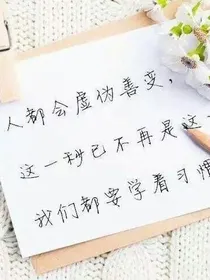 人都会虚伪善变，
这一秒已不再是这
我们都要学着习惯